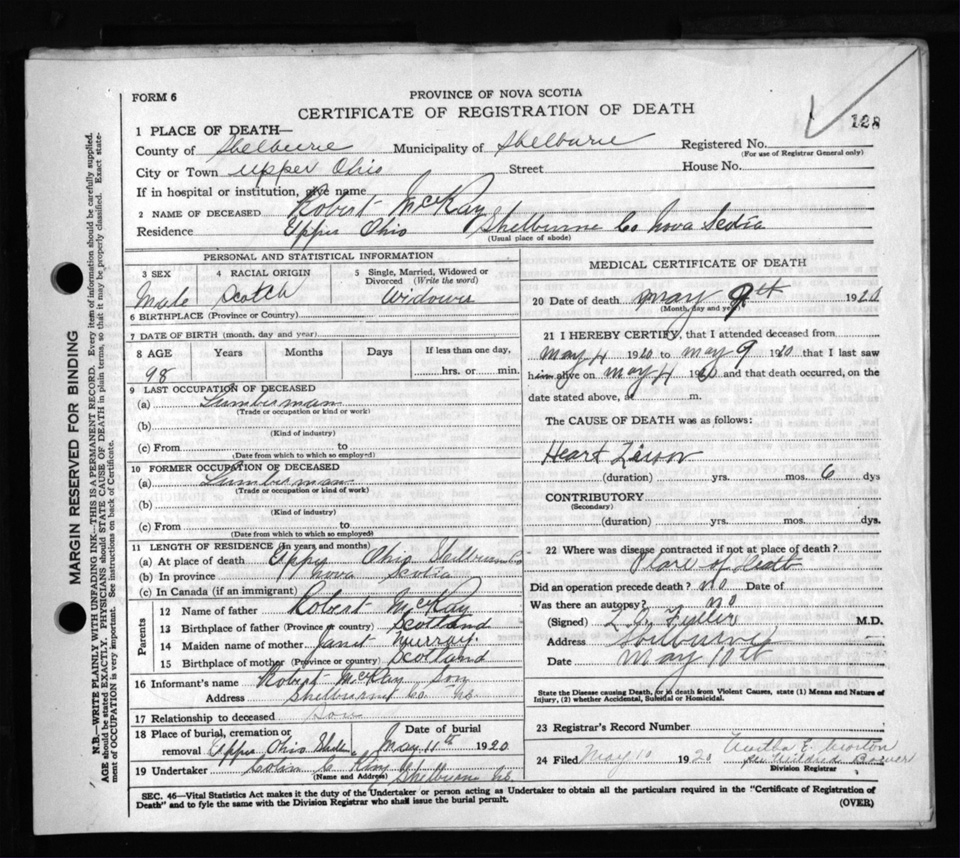 FORM 6
PROVINCE OF NOVA SCOTIA
CERTIFICATE OF REGISTRATION OF DEATH
128
1 PLACE OF DEATH—
County of Shelburne Municipality of Shelburne Registered No.
(For use of Registrar General only)
City or Town Upper Ohio Street House No.
If in hospital or institution, give name
2 NAME OF DECEASED Robert McKay
Residence Upper Ohio Shelburne Co Nova Scotia
(Usual place of abode)
PERSONAL AND STATISTICAL INFORMATION
3 SEX 4 RACIAL ORIGIN 5 Single, Married, Widowed or Divorced (Write the word)
Male Scotch Widower
6 BIRTHPLACE (Province or Country)
7 DATE OF BIRTH (month, day and year)
8 AGE Years Months Days If less than one day,
98 hrs. or min.
9 LAST OCCUPATION OF DECEASED
(a) Lumberman
(Trade or occupation or kind or work)
(b)
(Kind of industry)
(c) From to
(Date from which to which so employed)
10 FORMER OCCUPATION OF DECEASED
(a) Lumberman
(Trade or occupation or kind or work)
(b)
(Kind of industry)
(c) From to
(Date from which so employed)
11 LENGTH OF RESIDENCE (In years and months)
(a) At place of death Uppr Ohio Shelburne
(b) In province Nova Scotia
(c) In Canada (if an immigrant)
Parents
12 Name of father Robert McKay
13 Birthplace of father (Province or country) Scotland
14 Maiden name of mother Janet Murray
15 Birthplace of mother (Province or country) Scotland
16 Informant's name Robert McKay Son
Address Shelburne Co NS
17 Relationship to deceased Son
18 Place of burial, cremation or removal Upper Ohio Date of burial May 11th 1920
19 Undertaker Colin C
(Name and Address) Shelburne NS
MEDICAL CERTIFICATE OF DEATH
20 Date of death May 9th 1920
(Month, day and year)
21 I HEREBY CERTIFY, that I attended deceased from
May 4 1920 to May 9 1920 that I last saw
him alive on May 4 1920 and that death occurred, on the
date stated above, at m.
The CAUSE OF DEATH was as follows:
Heart
(duration) yrs. mos. 6 dys
CONTRIBUTORY
(Secondary)
(duration) yrs. mos. dys.
22 Where was disease contracted if not at place of death?
Place of death
Did an operation precede death? no Date of
Was there an autopsy? no
(Signed) Fuller M.D.
Address Shelburne
Date May 10th
State the Disease causing Death, or in death from Violent Causes, state (1) Means and Nature of
Injury, (2) whether Accidental, Suicidal or Homicidal.
23 Registrar's Record Number
24 Filed May 10 1920 E. Morton
per Mildred
Division Registrar
SEC. 46—Vital Statistics Act makes it the duty of the Undertaker or person acting as Undertaker to obtain all the particulars required in the "Certificate of Registration of
Death" and to fyle the same with the Division Registrar who shall issue the burial permit. (OVER)
MARGIN RESERVED FOR BINDING
N.B.—WRITE PLAINLY WITH UNFADING INK—THIS IS A PERMANENT RECORD. Every item of information should be carefully supplied.
AGE should be stated EXACTLY. PHYSICIANS should STATE CAUSE OF DEATH in plain terms, so that it may be properly classified. Exact statement of OCCUPATION is very important. See instructions on back of Certificate.